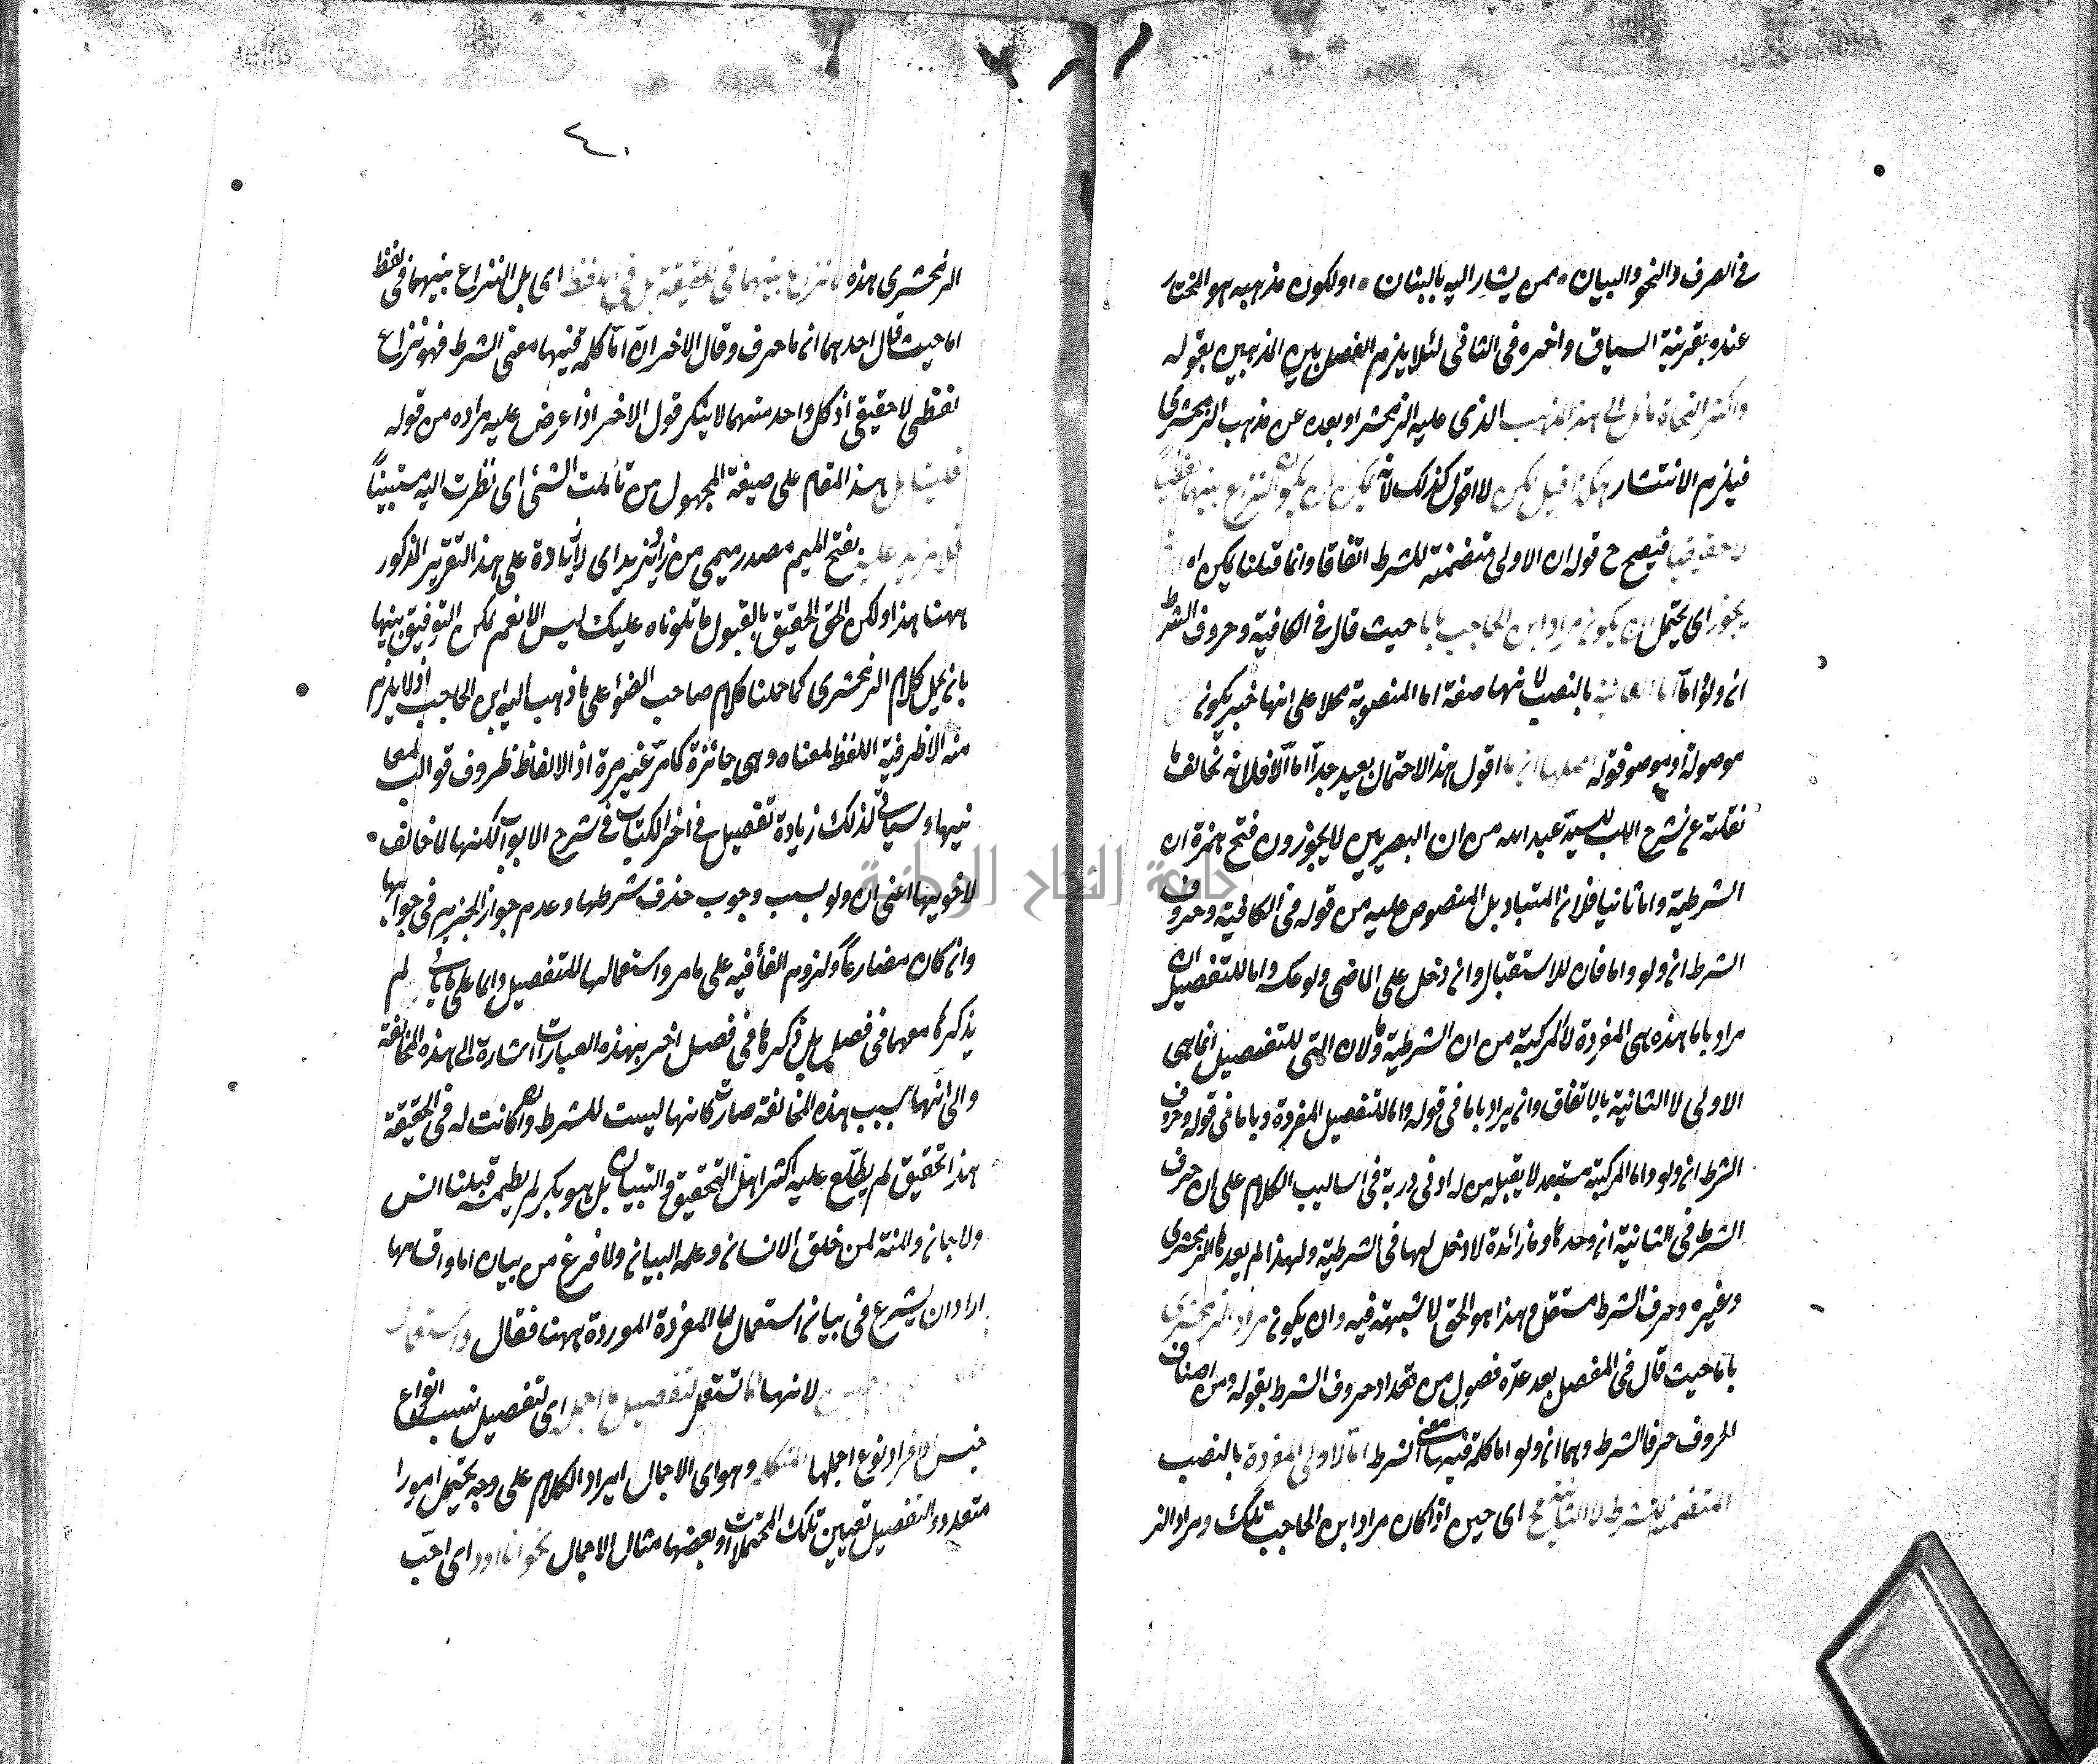 في الصرف والنحو والبيان ممن يشار اليه بالبنان او لكون مذهبه هو المختار
عنده بقرينة السياق واخره في الثاني لئلا يلزم الفصل بين المذهبين بقوله
واكثر النحاة مائل الى هذا المذهب الذى عليه الزمخشر او بعده عن مذهب الزمخشرى
فيلزم الانتشار هكذا قيل لكن لا اقول كذلك لانه يمكن ان يكون النزاع بينهما لفظيا
لا حقيقيا فيصح ح قوله ان الاولى متضمنة للشرط اتفاقا وانما قلنا يمكن اه
يجوز اى يحتمل ان يكون مراد ابن الحاجب باما حيث قال في الكافية وحروف الشرط
ان ولو واما اما الثانية بالنصب لانها صفة اما المنصوبة محلا على انها خبر يكون
موصولة او موصوفة اصلها ان ما اقول هذا الاحتمال بعيد جدا اما الا فلانه تخالف لما
نقلته عن شرح اللب للسيد عبد الله من ان البصريين لا يجوزون فتح همزة ان
الشرطية واما ثانيا فلان المتبادر بل المنصوص عليه من قوله في الكافية وحروف
الشرط ان ولو واما فان للاستقبال وان دخل على الماضى ولو عكسه واما للتفصيل ان
مراد باما هذه هى المفردة لا المركبة من ان الشرطية ولان التى للتفصيل انما هى
الاولى لا الثانية بالاتفاق وان يراد باما في قوله واما للتفصيل المفردة وباما في قوله وحروف
الشرط ان ولو واما المركبة مستبعد لا يقبله من له ادنى دربة في اساليب الكلام على ان حرف
الشرط في الثانية ان وحدها وما زائدة لا دخل لها في الشرطية ولهذا لم يعدها الزمخشرى
وغيره وحرف الشرط مستقل وهذا هو الحق لا شبهة فيه وان يكون مراد الزمخشرى
باما حيث قال في المفصل بعد عدة فصول من تعداد حروف الشرط بقوله ومن اصناف
الحروف حرفا الشرط وهما ان ولو اما كلمة فيها معنى الشرط اما الاولى المفردة بالنصب
المتضمنة للشرط لا الثانية ح اى حين اذ كان مراد ابن الحاجب تلك ومراد الز
٤٠
الزمخشرى هذه لا نزاع بينهما في الحقيقة بل في اللفظ اى بل النزاع بينهما في لفظ
اما حيث قال احدهما انها حرف وقال الاخر ان اما كلمة فيها معنى الشرط فهو نزاع
لفظى لا حقيقى اذ كل واحد منهما لا ينكر قول الاخر اذا عرض عليه مراده من قوله
فليتأمل هذا المقام على صيغة المجهول من تأملت الشئ اى نظرت اليه مستبينا
فلا مزيد عليه بفتح الميم مصدر ميمى من زاد يزيد اى لا زيادة على هذا التقرير المذكور
ههنا هذا ولكن الحق الحقيق بالقبول ما تلوناه عليك ليس الا نعم يمكن التوفيق بينها
بان يحمل كلام الزمخشرى كما حملنا كلام صاحب الضوأ على ما ذهب اليه ابن الحاجب اذ لا يلزم
منه الا ظرفية اللفظ لمعناه وهى جائزة كما مر غير مرة اذ الالفاظ ظروف قوالب لمعا
نيها وسيأتى لذلك زيادة تفصيل في اخر الكتاب في شرح الابواب لكنها لما خالف
لاخويها اعنى ان ولو بسبب وجوب حذف شرطها وعدم جواز الجزم في جوابها
وان كان مضارعا ولزوم الفأ فيه على ما مر واستعمالها للتفصيل دائما على ما يأتى لم
يذكرها معهما في فصل بل ذكرها في فصل اخر بهذه العبارات اشارة الى هذه المخالفة
والى انها بسبب هذه المخالفة صارت كانها ليست للشرط وان كانت له في الحقيقة
هذا تحقيق لم يطلع عليه اكثر اهل التحقيق والتبيان بل هو بكر لم يطمثه قبلنا انس
ولا جان والمنة لمن خلق الانسان وعلمه البيان ولما فرغ من بيان اما واقسامها
اراد ان يشرع في بيان استعمال اما المفردة الموردة ههنا فقال واستعمال
لانها انما تستعمل لتفصيل ما اجمل اى لتفصيل نسب انواع
جنس او افراد نوع اجملها المتكلم وهو اى الاجمال ايراد الكلام على وجه يحتمل امورا
متعددة والتفصيل تعيين تلك المحتملات او بعضها مثال الاجمال نحو انا اود اى احب
جامعة النجاح الوطنية